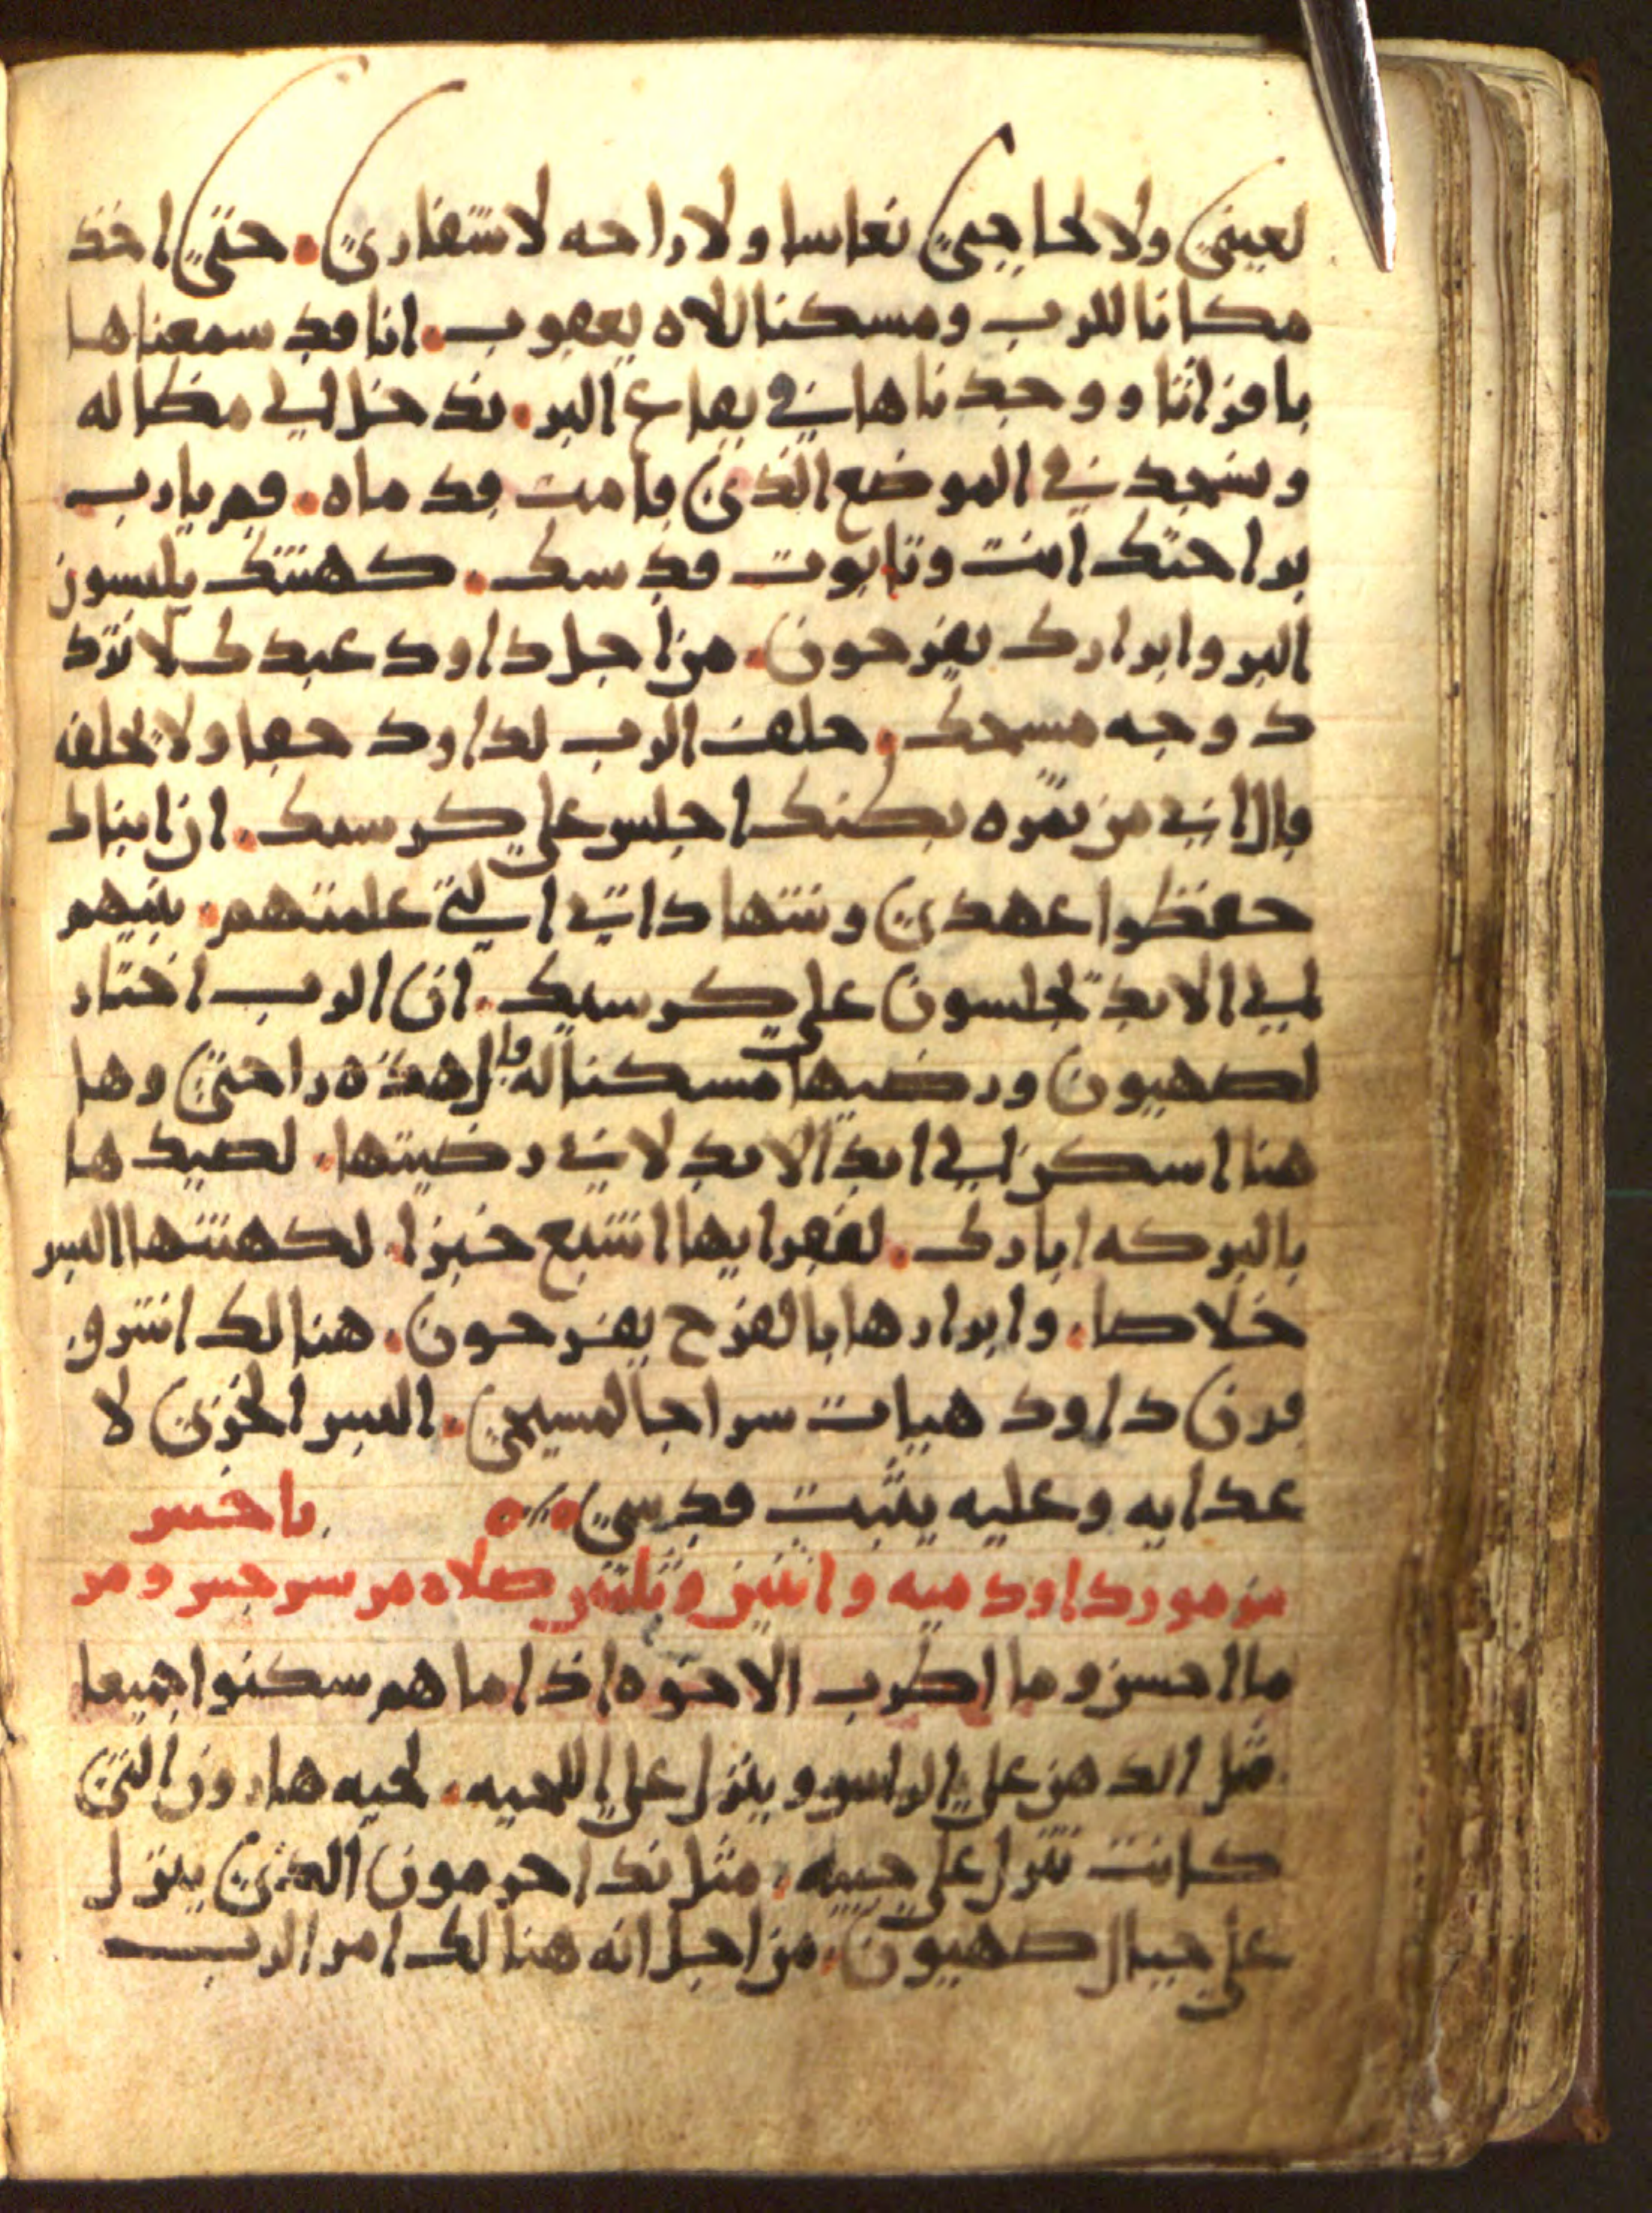 لعيني ولا لحاجبي نعاسا ولا راحه لاشفاري. حتي اخذ
مكانا للرب ومسكنا للاه يعقوب. انا قد سمعناها
بافراثا ووجدناها في بقاع البر. ندخل الي مظاله
ونسجد في الموضع الذي قامت قدماه. قم يا رب
براحتك انت وتابوت قدسك. كهنتك يلبسون
البر وابرارك يفرحون. من اجل داود عبدك لا ترد
د وجه مسيحك. حلف الرب لداود حقا ولا يخلفه
قال اني من ثمره بطنك اجلس علي كرسيك. ان ابناك
حفظوا عهدي وشهاداتي التي علمتهم. بنيهم
الي الابد يجلسون علي كرسيك. ان الرب اختار
لصهيون ورضيها مسكنا له قال هذه راحتي وها
هنا اسكن الي ابد الابد لاني رضيتها. لصيدها
بالبركه ابارك. لفقرايها اشبع خبزا. لكهنتها البس
خلاصا. وابرارها بالفرح يفرحون. هنالك اشرق
قرن داود هيات سراجا لمسيحي. البس الخزي لا
عدايه وعليه يثبت قدسي
مزمور داود ميه واثنين وثلثين صلاه مر سرجس ومر
باخس
ما احسن وما اطرب الاخوه اذا ما هم سكنوا جميعا
مثل الدهن علي الراس وينزل علي اللحيه. لحيه هارون التي
كانت تنزل علي جيبه. مثل ندا حرمون الذي ينزل
علي جبال صهيون. من اجل انه هنالك امر الرب